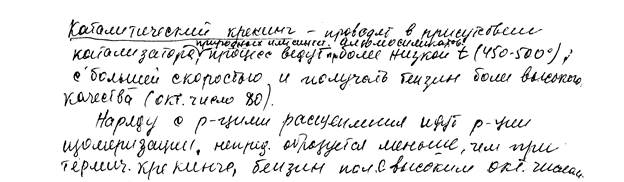 Каталитический крекинг – проводят в присутствии
природных или синт. алюмосиликатов
катализатора, процесс ведут при более низкой t (450-500°),
с большей скоростью и получать бензин боле высокого
качества (окт. число 80).
Наряду с р-циями расщепления идут р-ции
изомеризации, непред. образуется меньше, чем при
термич. крекинге, бензин пол. с высоким окт. числом